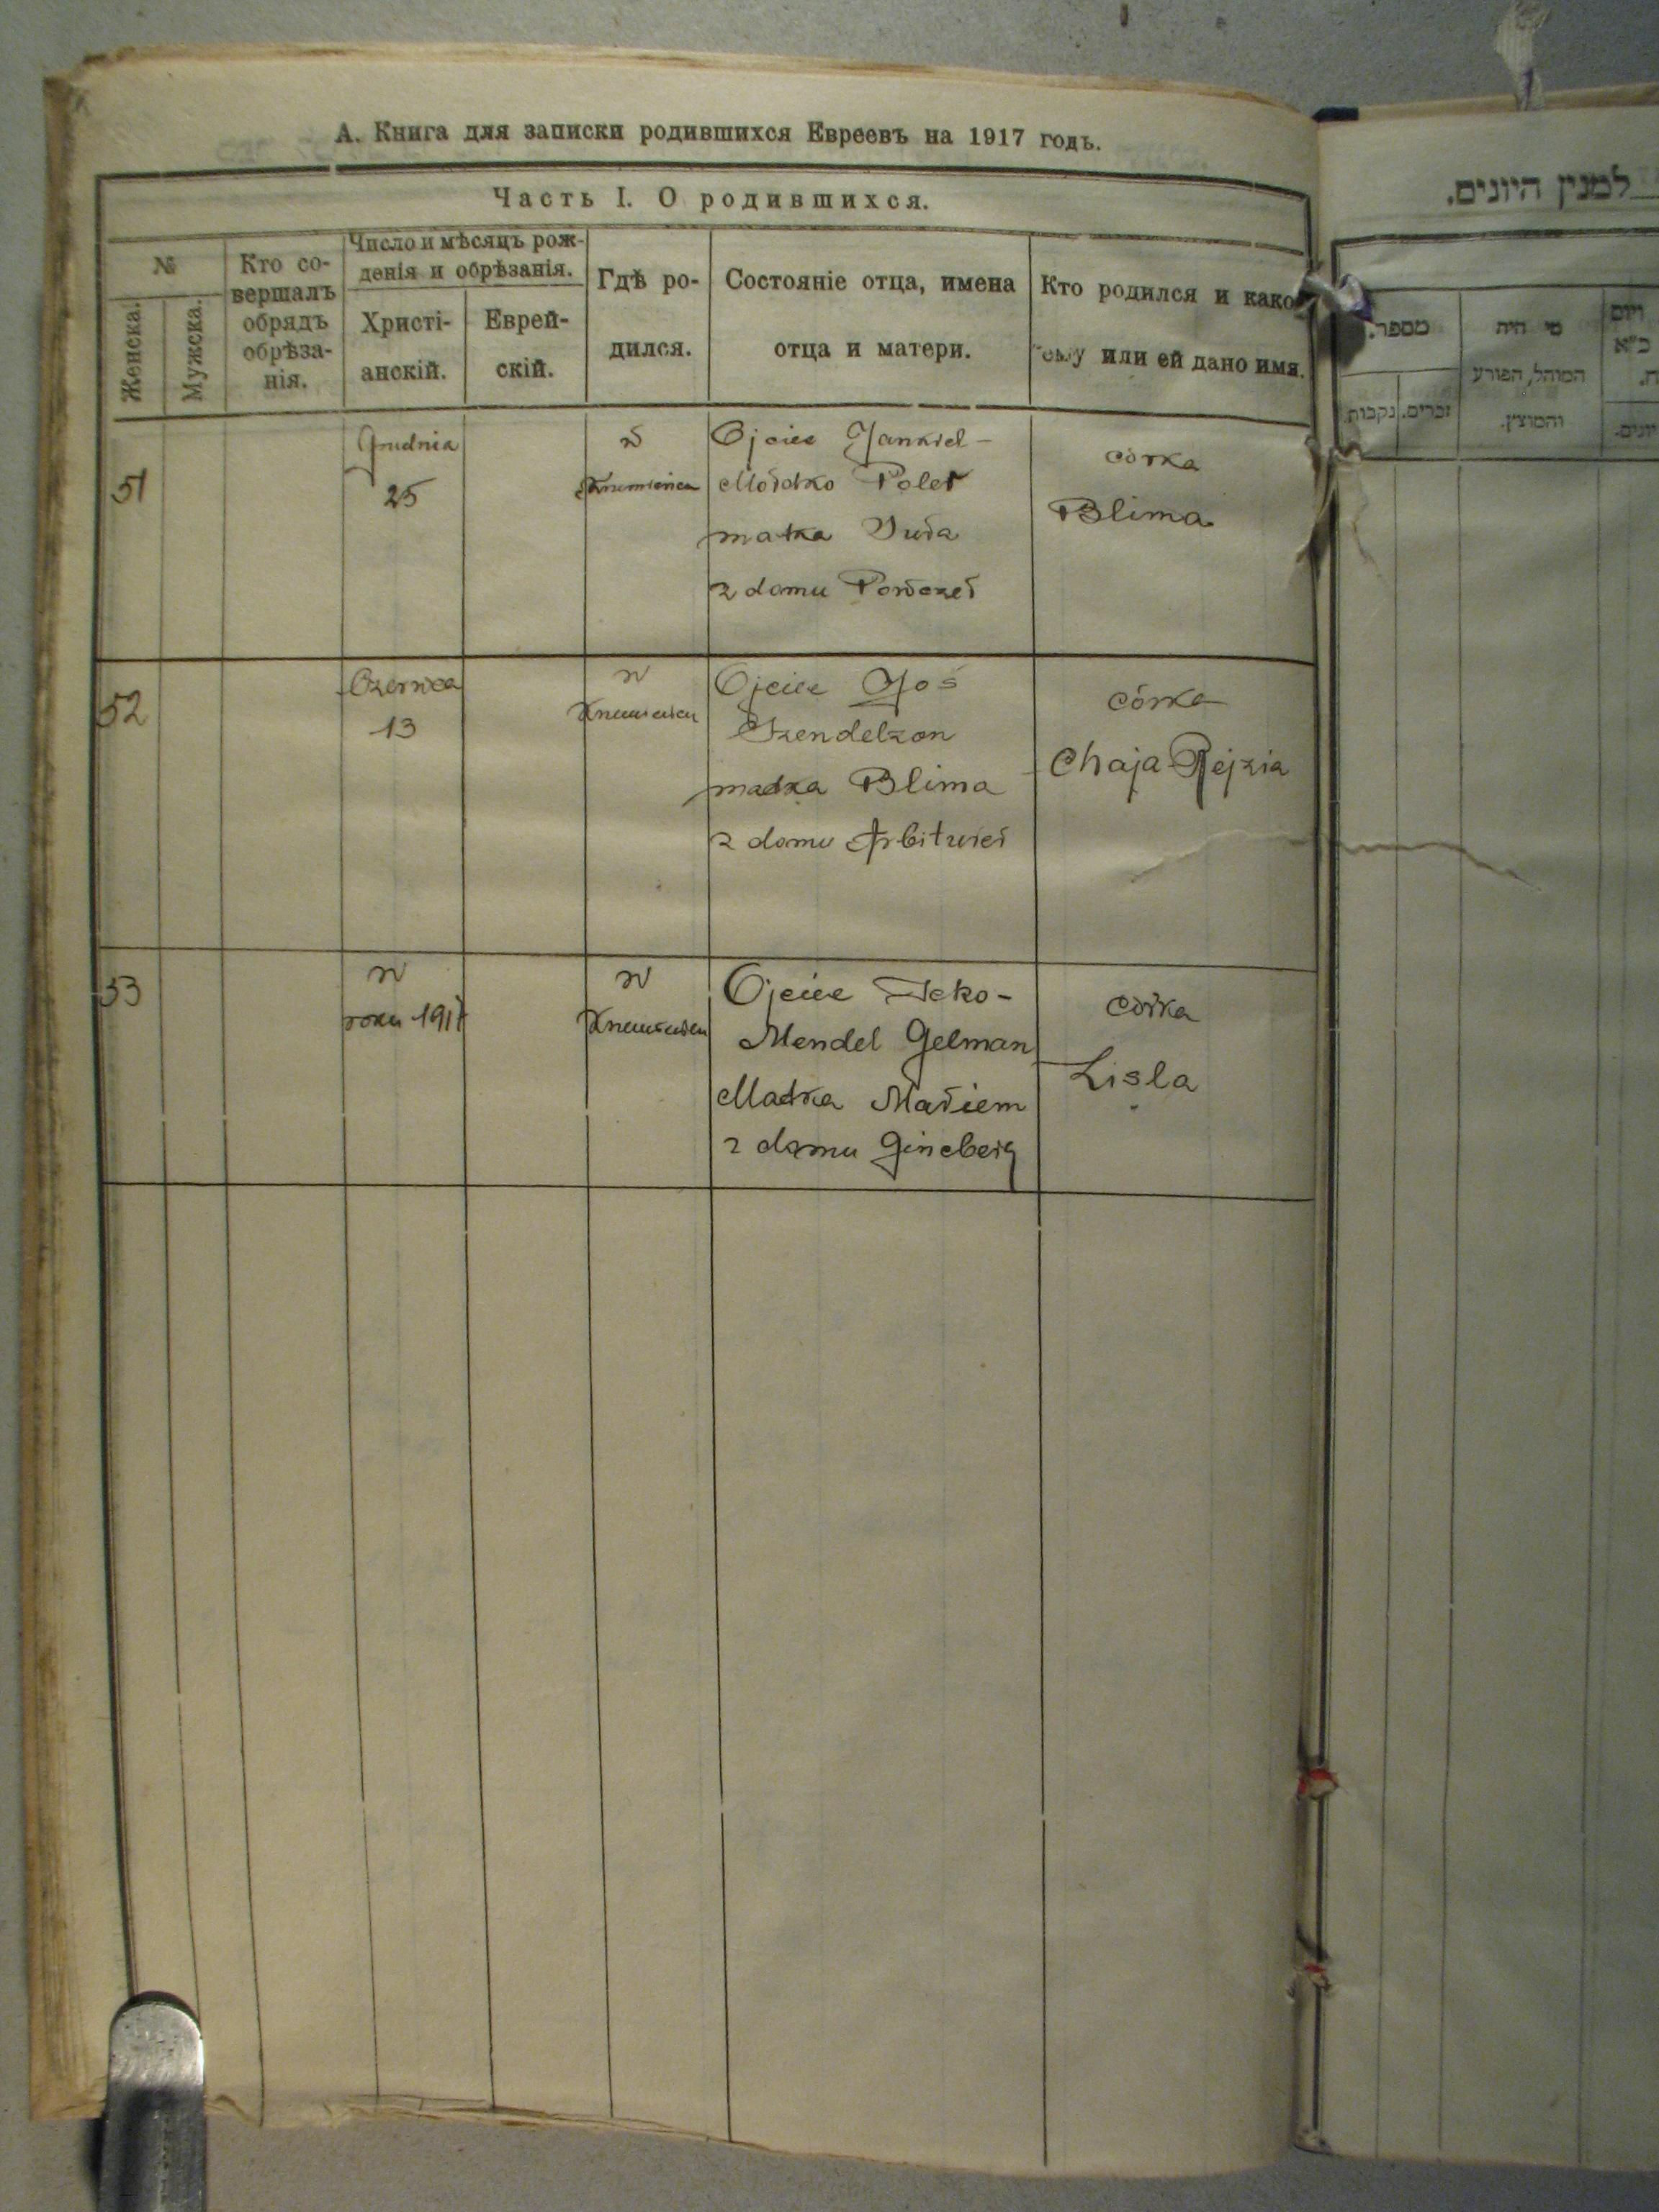 А. Книга для записки родившихся Евреевъ на 1917 годъ.
Часть I. О родившихся.
№
Женска.
Мужска.
Кто со-
вершалъ
обрядъ
обрѣза-
нія.
Число и мѣсяцъ рож-
денія и обрѣзанія.
Христі-
анскій.
Еврей-
скій.
Гдѣ ро-
дился.
Состояніе отца, имена
отца и матери.
Кто родился и како
ему или ей дано имя.
51
Grudnia
25
w
Krzemieńcu
Ojciec Jankiel-
Mordko Poler
matka Sura
z domu Porczer
córka
Blima
52
Czerwca
13
w
Krzemieńcu
Ojciec Joś
Szendelzon
matka Blima
z domu Arbitwier
córka
Chaja Rejzia
53
w
roku 1917
w
Krzemieńcu
Ojciec Icko-
Mendel Gelman
Matka Mariem
z domu Gincberg
córka
Lisla
למנין היונים.
מספר.
נקבות
זכרים.
מי היה
המוהל, הפורע
והמוצץ.